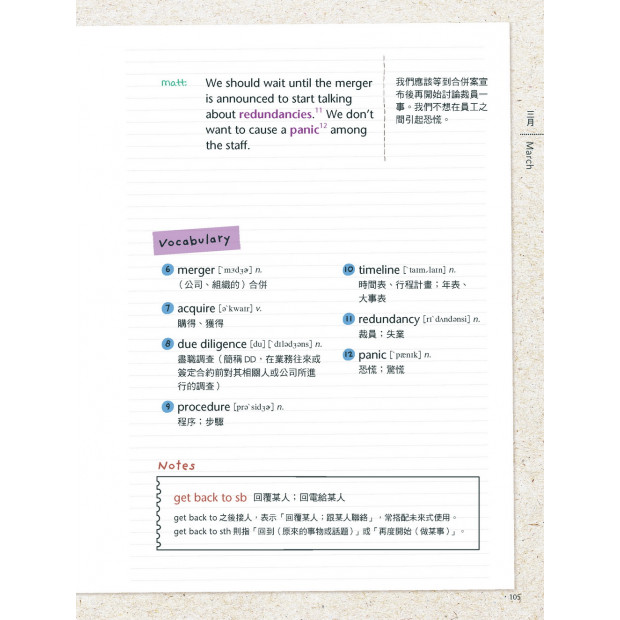 matt:
We should wait until the merger
is announced to start talking
about redundancies.11 We don't
want to cause a panic12 among
the staff.
我們應該等到合併案宣
布後再開始討論裁員一
事。我們不想在員工之
間引起恐慌。
三月
March
Vocabulary
6 merger [ˋmɝdʒɚ] n.
（公司、組織的）合併
7 acquire [əˋkwaɪr] v.
購得、獲得
8 due diligence [du] [ˋdɪlədʒəns] n.
盡職調查（簡稱 DD，在業務往來或
簽定合約前對其相關人或公司所進
行的調查）
9 procedure [prəˋsidʒɚ] n.
程序；步驟
10 timeline [ˋtaɪm͵laɪn] n.
時間表、行程計畫；年表、
大事表
11 redundancy [rɪˋdʌndənsi] n.
裁員；失業
12 panic [ˋpænɪk] n.
恐慌；驚慌
Notes
get back to sb 回覆某人；回電給某人
get back to 之後接人，表示「回覆某人；跟某人聯絡」，常搭配未來式使用。
get back to sth 則指「回到（原來的事物或話題）」或「再度開始（做某事）」。
105